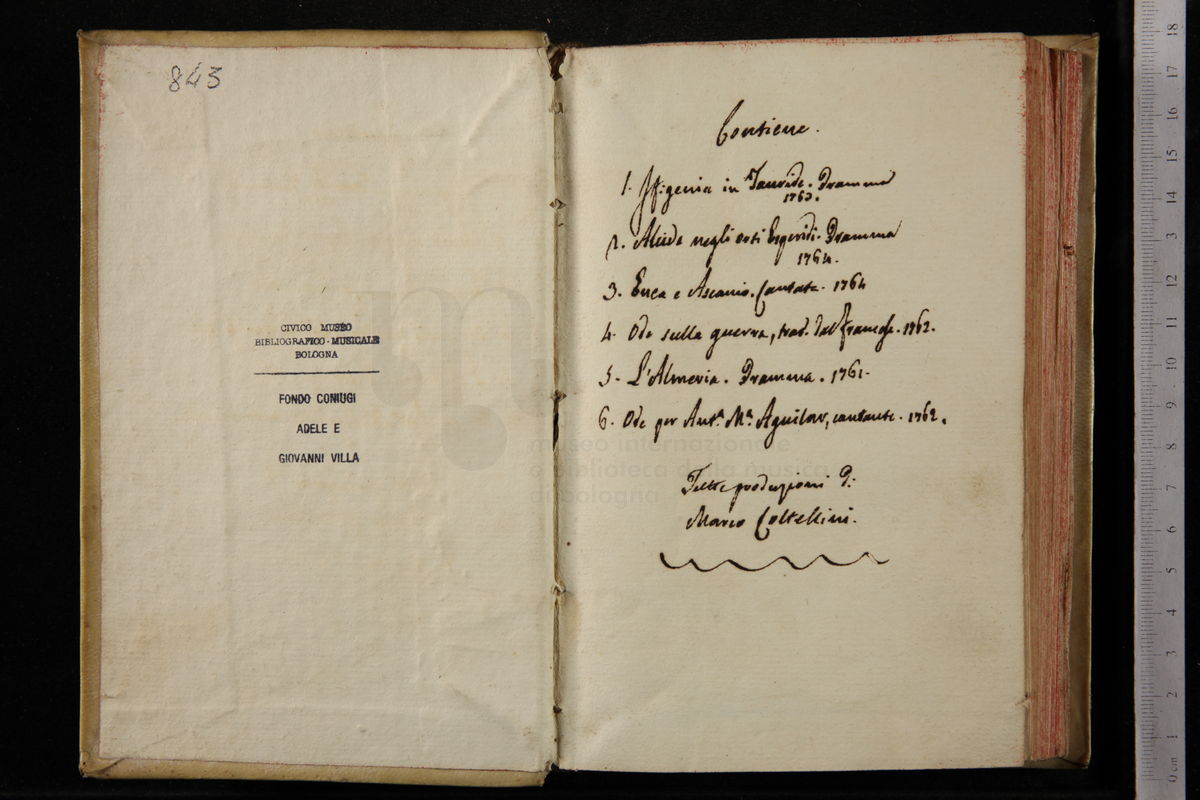 843
CIVICO MUSEO
BIBLIOGRAFICO-MUSICALE
BOLOGNA
FONDO CONIUGI
ADELE E
GIOVANNI VILLA
Contiene.
1. Iffigenia in Tauride. Dramma
1763.
2. Alcide negli orti Esperidi. Dramma
1764.
3. Enea e Ascanio. Cantata. 1764
4. Ode sulla guerra, trad. dal francese. 1762.
5. L'Almeria. Dramma. 1761.
6. Ode per Antª. Mª. Aguilar, cantante. 1762.
Tutte produzioni di
Marco Coltellini.
museo internazionale
e biblioteca della musica
di bologna
0 cm 1 2 3 4 5 6 7 8 9 10 11 12 13 14 15 16 17 18